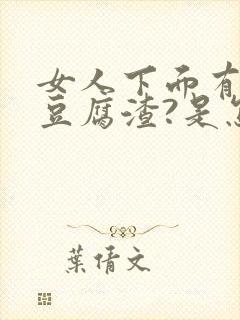 女人下面有
豆腐渣?是怎
葉倩文